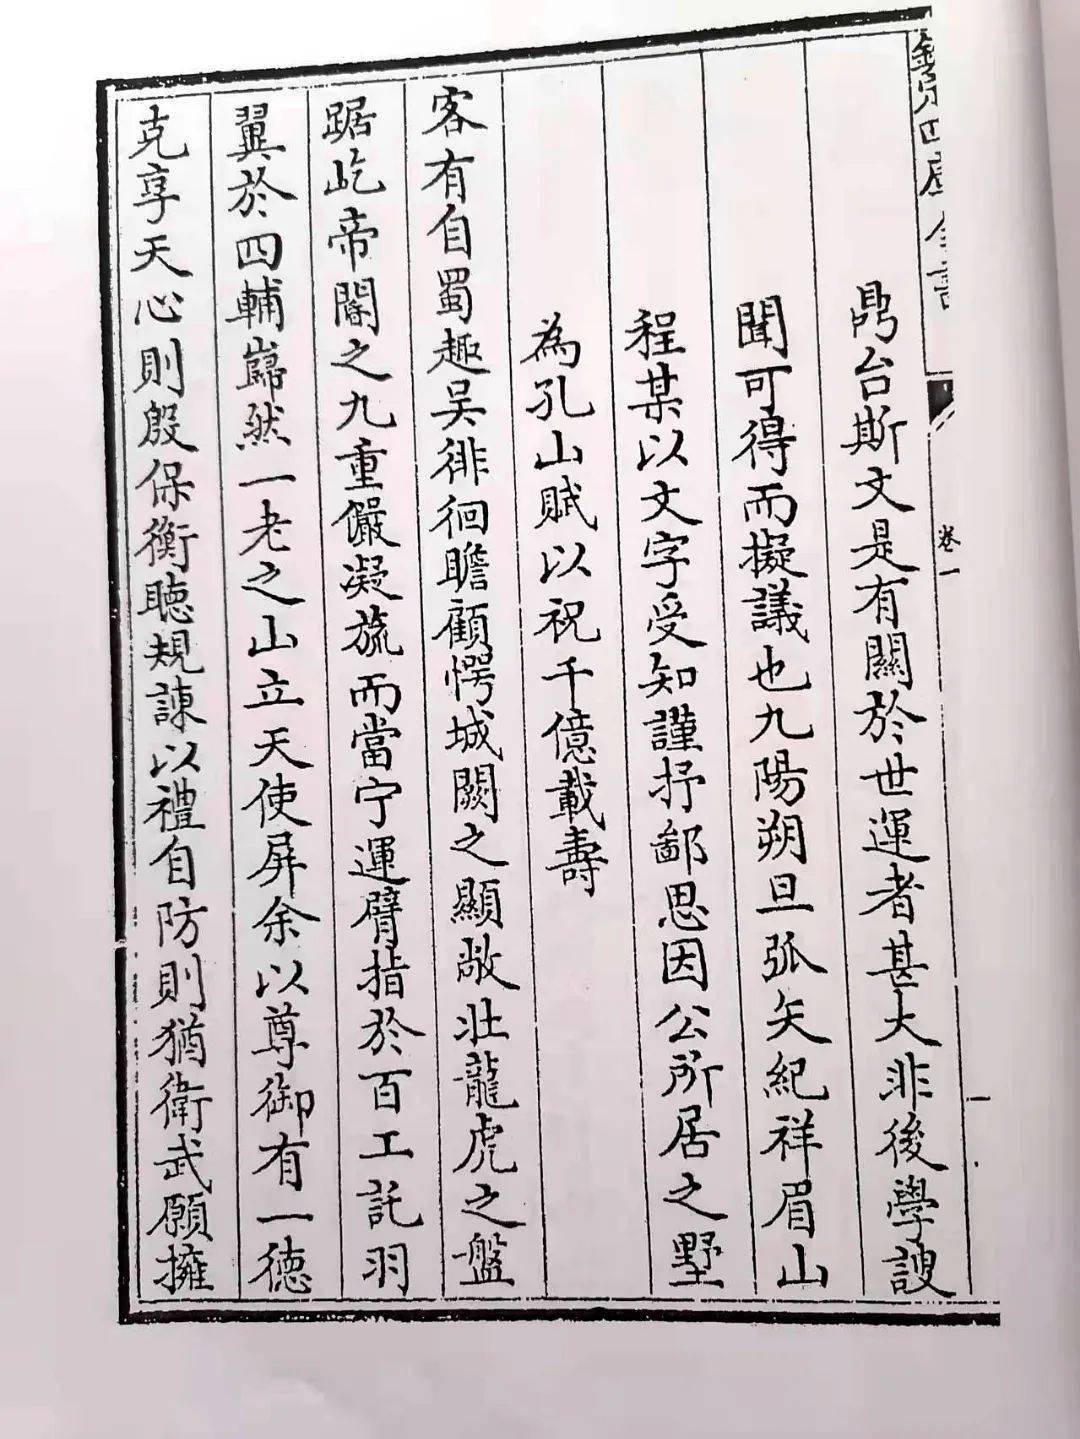 欽定四庫全書
卷一
一
鼎台斯文是有關於世運者甚大非後學謏
聞可得而擬議也九陽朔旦弧矢紀祥眉山
程某以文字受知謹抒鄙思因公所居之墅
為孔山賦以祝千億載壽
客有自蜀趣吳徘徊瞻顧愕城闕之顯敞壯龍虎之盤
踞屹帝閽之九重儼凝旒而當宁運臂指於百工託羽
翼於四輔巋然一老之山立天使屏余以尊御有一德
克享天心則殷保衡聴規諫以禮自防則猶衛武願擁